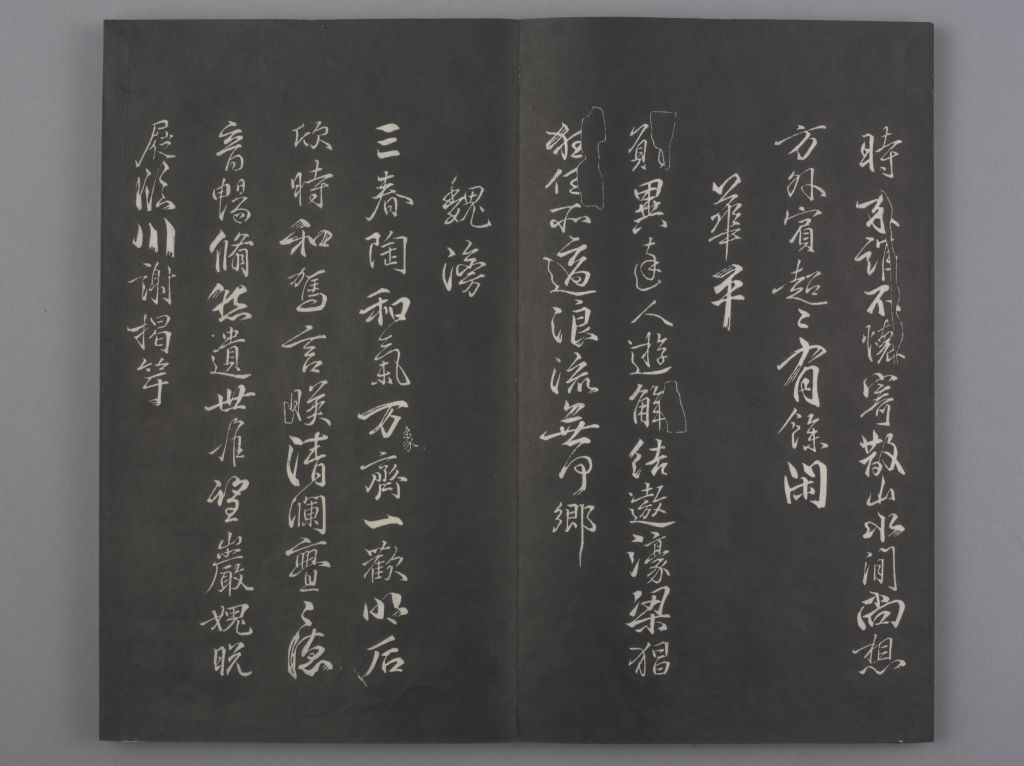 時来誰不懷寄散山水間尚想
方外賓超〻有餘閑
華平
異達人遊解結遨濠梁猖
狂任所適浪流無何鄉
魏滂
三春陶和氣万象齊一歡明后
欣時和駕言暎清瀾亹〻德
音暢脩然遺世難望巖愧脫
屣臨川謝揭竿